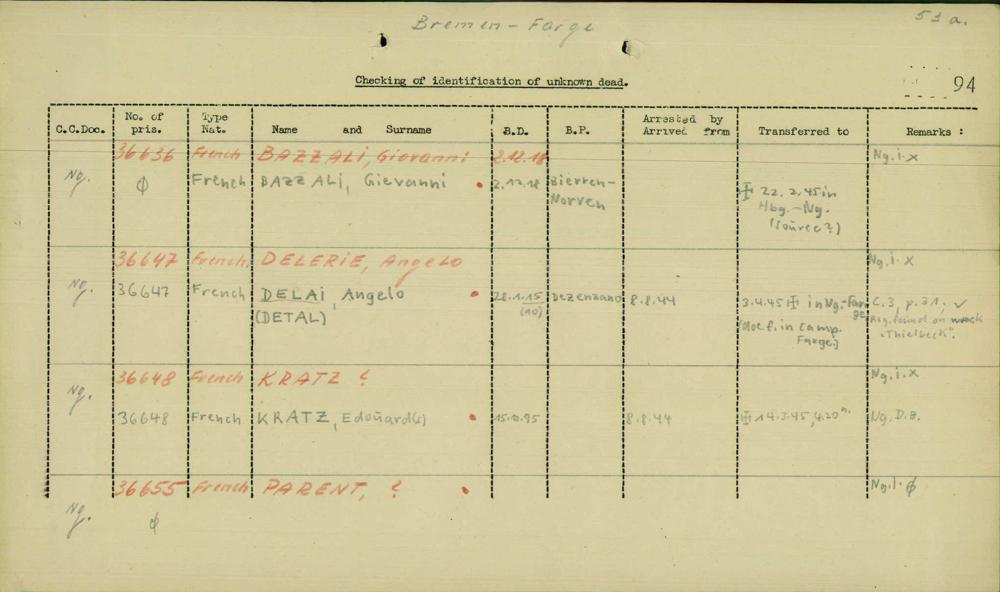 Bremen-Farge
53 a.
Checking of identification of unknown dead.
94
C.C.Doc. No. of pris. Type Nat. Name and Surname B.D. B.P. Arrested by Arrived from Transferred to Remarks :
36636 French BAZZALI, Giovanni 2.12.18 Ng.i.x
Ng. ϕ French BAZZALI, Gievanni 2.12.18 Bierren-
Norven
22.2.45 in
Hbg.-Ng.
(source?)
36647 French DELERIE, Angelo Ng.i.x
Ng. 36647 French DELAI, Angelo 28.1.15 Dezenzano 8.8.44 3.4.45 in Ng.-Farge C.3, p.31. ✓
(DETAL) (10) (doc f. in camp. Reg. found on wreck
Farge.) "Thielbeck".
36648 French KRATZ ? Ng.i.x
Ng. 36648 French KRATZ, Edoŭard(s) 15.10.95 8.8.44 14.3.45, 4.20 h. Ng. D.B.
36655 French PARENT, ? Ng.i.ϕ
Ng. ϕ